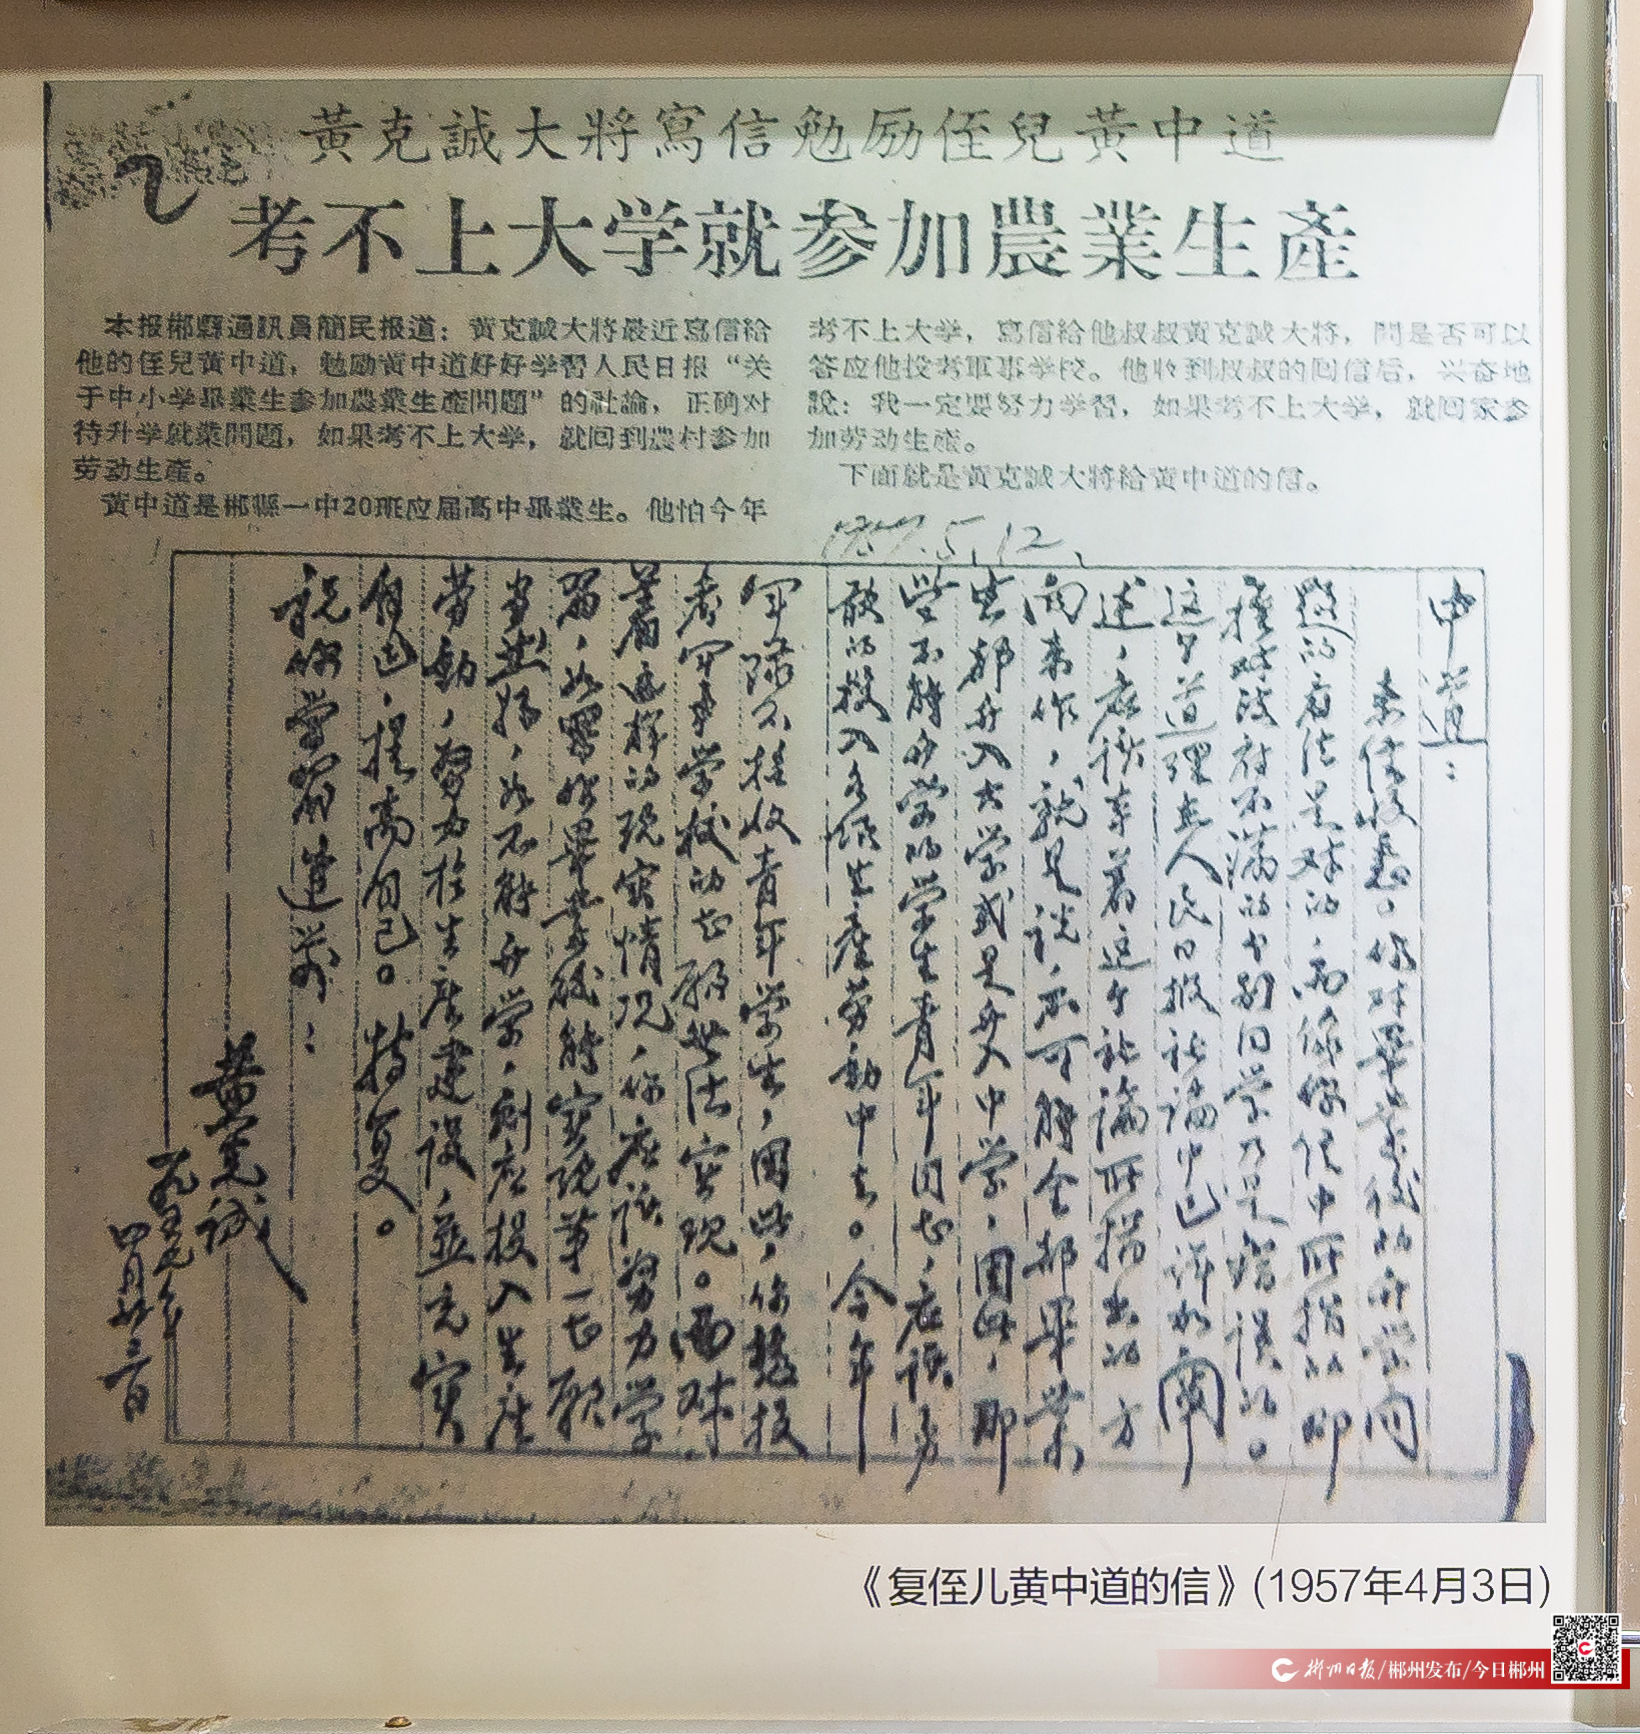 黃克誠大將寫信勉励侄兒黃中道
考不上大学就参加農業生產
本报郴縣通訊員簡民报道：黃克誠大將最近寫信給
他的侄兒黃中道，勉励黃中道好好学習人民日报“关
于中小学畢業生参加農業生產問題”的社論，正确对
待升学就業問題，如果考不上大学，就回到農村参加
劳动生產。
黃中道是郴縣一中20班应届高中畢業生。他怕今年
考不上大学，寫信給他叔叔黃克誠大將，問是否可以
答应他投考軍事学校。他收到叔叔的回信后，兴奋地
說：我一定要努力学習，如果考不上大学，就回家参
加劳动生產。
下面就是黃克誠大將給黃中道的信。
1957.5.12.
中道：
来信收悉。你对畢業後的升学問
題的看法是对的，而你信中所指的那
種对政府不滿的个别同学乃是錯誤的。
这个道理在人民日报社論中已詳加闡
述，应依案着这个社論所指出的方
向来作，就是说，不可能全部畢業
生都升入大学或是升入中学，因此，那
些不能升学的学生青年同志，应該勇
敢的投入各項生產劳動中去。今年
军隊不招收青年学生，因此，你想投
考军事学校的志願無法实现。面对
着這样的现实情况，你应該努力学
習，如果畢業後能实现第一志願
当然好，如不能升学，則应投入生產
劳動，努力於生產建設，並充实
自己，提高自己。特复。
祝你学習進步：
黄克誠
一九五七年
四月三日
《复侄儿黄中道的信》(1957年4月3日)
郴州日报/郴州发布/今日郴州